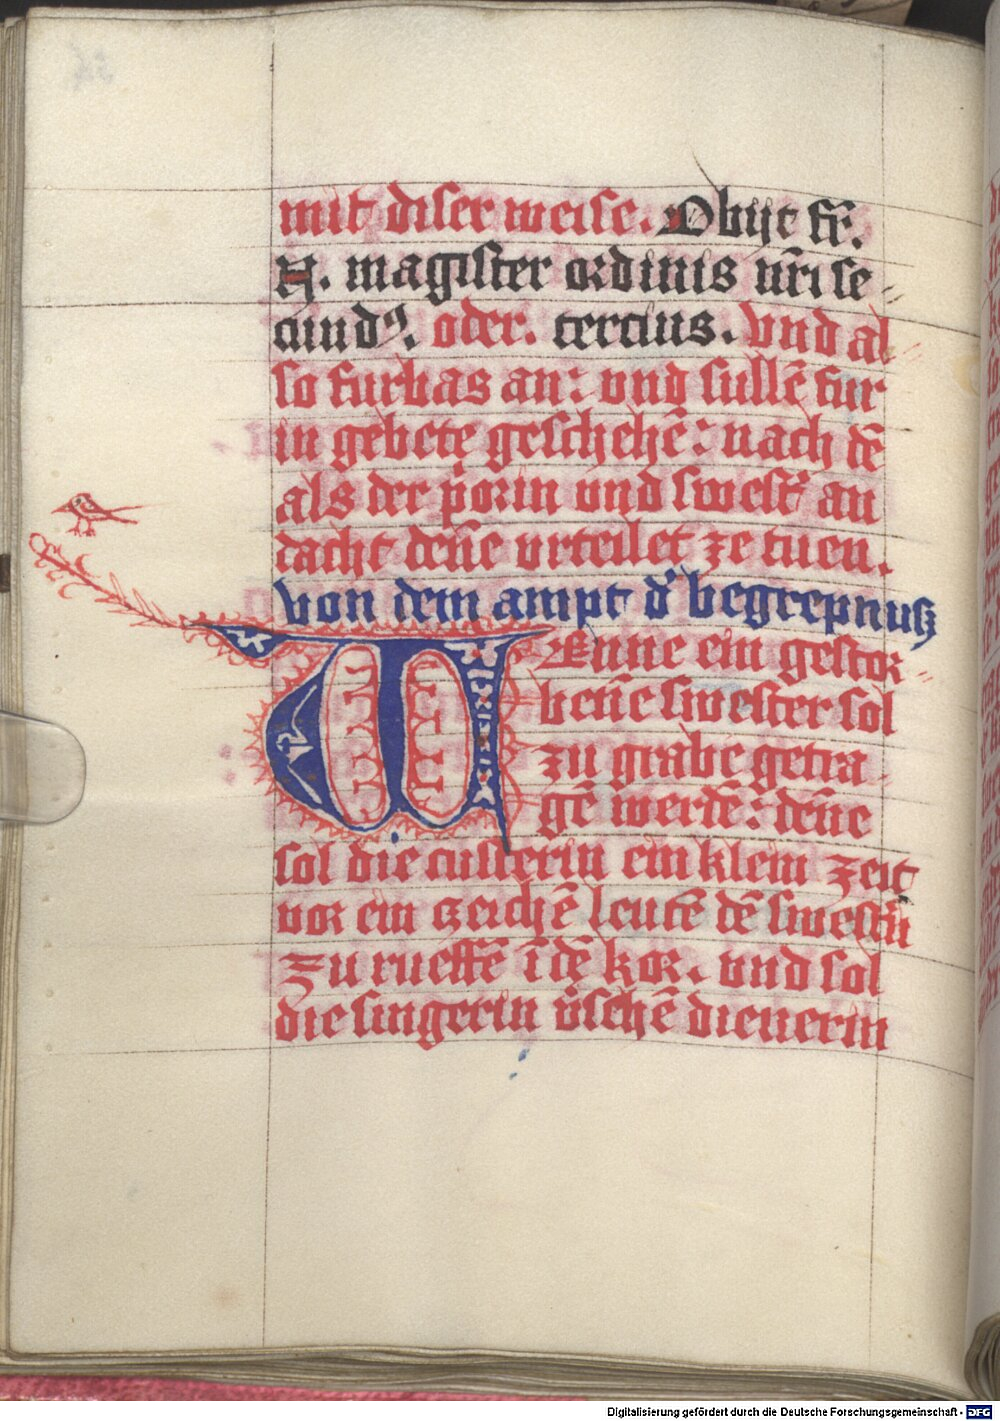 mit diser weise. Obijt fr̄.
H. magister ordinis nr̄i se-
cundꝰ. oder. tercius. vnd al-
so furbas an: vnd sullē fur
in gebete geschehē: nach dē
als der p̓orin vnd swest̓ an
dacht deñe vrteilet ze tuen.
von dem ampt d̓ begrepnuß
Wenne ein gestor-
beñe swester sol
zu grabe getra
gē werdē: deñe
sol die custerin ein klein zeit
vor ein czeichē leutē dē swest̓n
zu rueffē ī dē kor. vnd sol
die singerin v̓sehē dienerin
Digitalisierung gefördert durch die Deutsche Forschungsgemeinschaft - DFG